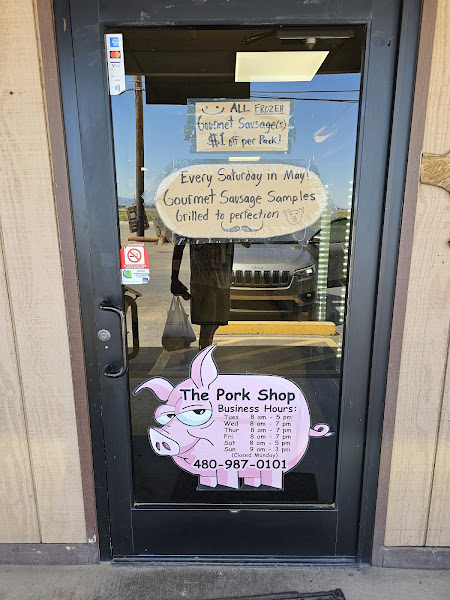 ALL FROZEN
Gourmet Sausage(s)
$1 off per Pack!
Every Saturday in May!
Gourmet Sausage Samples
Grilled to perfection
The Pork Shop
Business Hours:
Tues 8 am - 5 pm
Wed 8 am - 7 pm
Thur 8 am - 7 pm
Fri 8 am - 7 pm
Sat 8 am - 5 pm
Sun 9 am - 3 pm
(Closed Monday)
480-987-0101